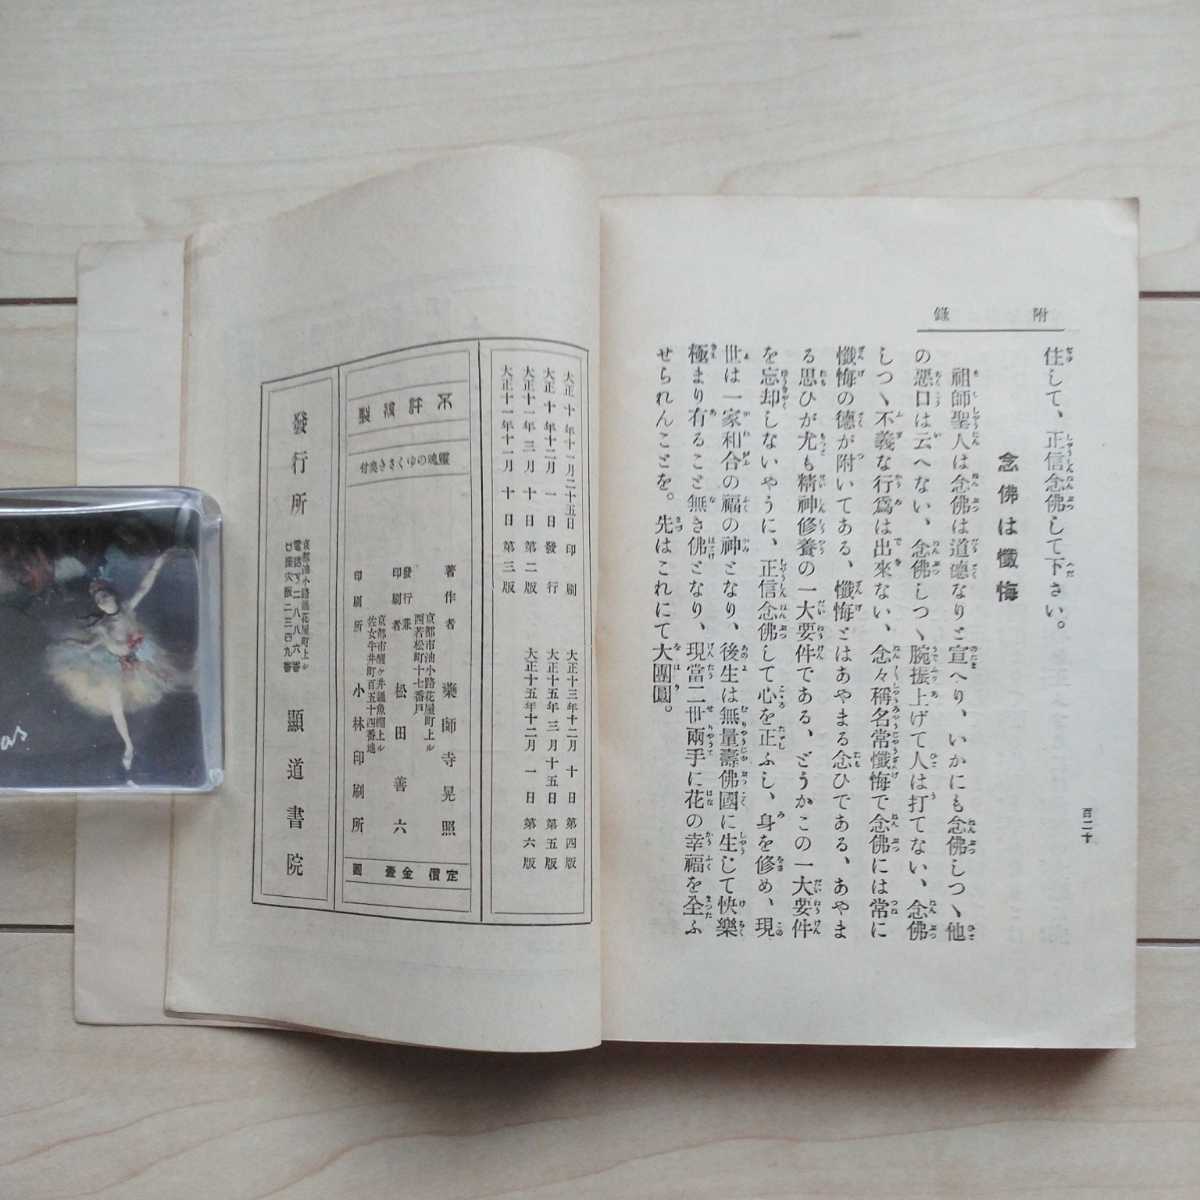 附錄
住して、正信念佛して下さい。
念佛は懺悔
祖師聖人は念佛は道德なりと宣へり、いかにも念佛しつゝ他
の惡口は云へない、念佛しつゝ腕振上げて人は打てない、念佛
しつゝ不義な行爲は出來ない、念々稱名常懺悔で念佛には常に
懺悔の德が附いてある、懺悔とはあやまる念ひである、あやま
る思ひが尤も精神修養の一大要件である、どうかこの一大要件
を忘却しないやうに、正信念佛して心を正ふし、身を修め、現
世は一家和合の福の神となり、後生は無量壽佛國に生じて快樂
極まり有ること無き佛となり、現當二世兩手に花の幸福を全ふ
せられんことを。先はこれにて大團圓。
百二十
大正十年十一月二十五日印刷
大正十年十二月一日發行
大正十一年三月十日第二版
大正十一年十一月十日第三版
大正十三年十二月十日第四版
大正十五年三月十五日第五版
大正十五年十二月一日第六版
不許複製
靈魂のゆくさき奥付
著作者 藥師寺晃照
京都市油小路花屋町上ル
西若松町十七番戸
發行兼印刷者 松田善六
京都市醒ヶ井通魚棚上ル
佐女牛井町百五十四番地
印刷所 小林印刷所
定價金壹圓
發行所
京都油小路通花屋町上ル
電話下二八八六番
口座大阪二三四九番
顯道書院
as